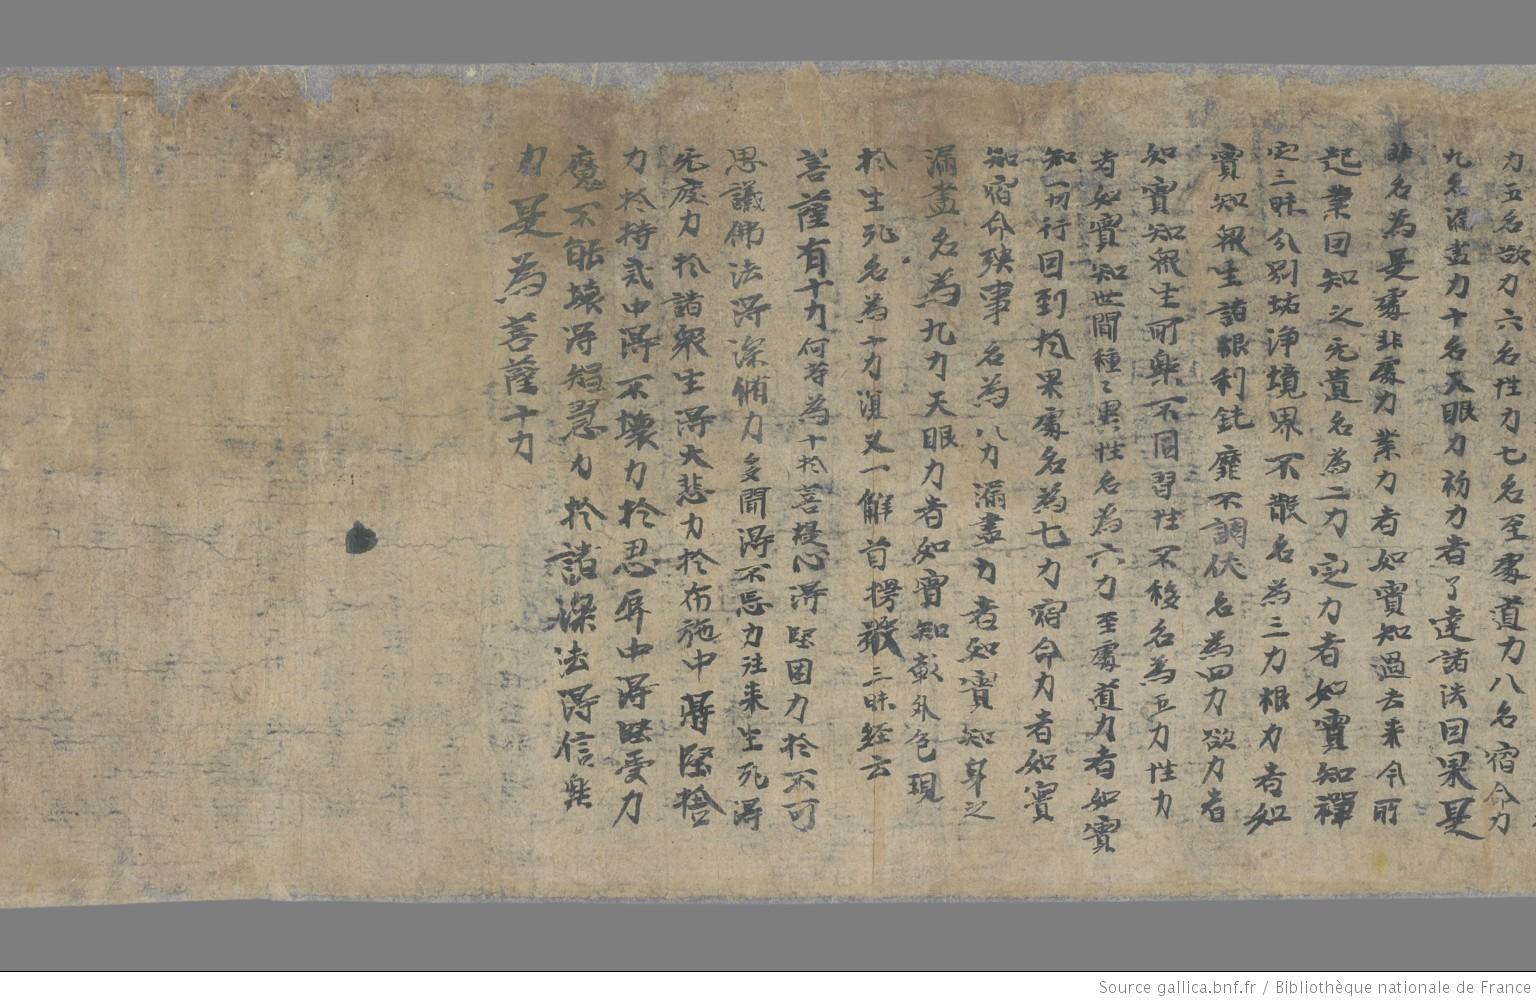 力五名欲力六名性力七名至處道力八名宿命力
九名漏盡力十名天眼力初力者了達諸法因果是
非名為是處非處力業力者如實知過去来今所
起業因知之无遺名為二力定力者如實知禪
定三昧分別垢淨境界不散名為三力根力者如
實知衆生諸根利鈍靡不調伏名為四力欲力者
知實知衆生所樂不同習性不移名為五力性力
者如實知世間種〻異性名為六力至處道力者如實
知一切行因到扵果處名為七力宿命力者如實
知宿命殃事名為八力漏盡力者如實知身之
漏盡名為九力天眼力者如實知彰外色現
扵生死名為十力復又一解首楞嚴三昧經云
菩薩有十力何等為十扵菩提心淂堅固力扵不可
思議佛法淂深脩力多聞淂不忘力往来生死淂
无疲力扵諸衆生淂大悲力扵布施中淂堅捨
力扵持戒中淂不壞力扵忍辱中淂堅受力
魔不能壞淂智慧力扵諸深法淂信樂
力是為菩薩十力
Source gallica.bnf.fr / Bibliothèque nationale de France